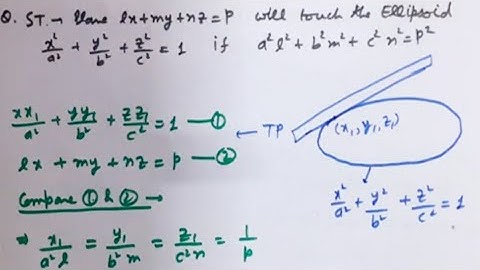 Q. ST. → Plane lx+my+nz=p will touch the Ellipsoid
x²/a² + y²/b² + z²/c² = 1 if a²l² + b²m² + c²n² = p²
xx₁/a² + yy₁/b² + zz₁/c² = 1 — ①
← TP
(x₁, y₁, z₁)
lx + my + nz = p — ②
x²/a² + y²/b² + z²/c² = 1
Compare ① & ② →
⇒ x₁/a²l = y₁/b²m = z₁/c²n = 1/p